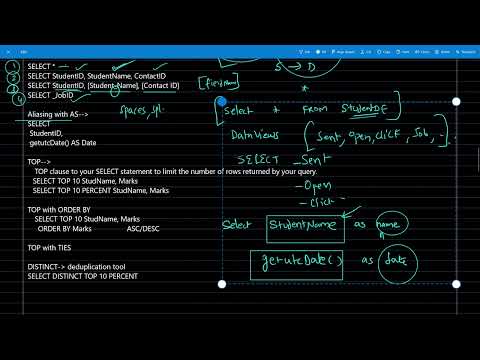 ① SELECT *
② SELECT StudentID, StudentName, ContactID
③ SELECT StudentID, [Student-Name], [Contact ID]
④ SELECT _JobID
Aliasing with AS-->
SELECT
StudentID,
getutcDate() AS Date
TOP-->
TOP clause to your SELECT statement to limit the number of rows returned by your query.
SELECT TOP 10 StudName, Marks
SELECT TOP 10 PERCENT StudName, Marks
TOP with ORDER BY
SELECT TOP 10 StudName, Marks
ORDER BY Marks ASC/DESC
TOP with TIES
DISTINCT-> deduplication tool
SELECT DISTINCT TOP 10 PERCENT
S → D
*
spaces,
[Select * from StudentDE]
DataViews (Sent, open, click, Job, -)
SELECT _Sent
_Open
_Click
Select StudentName as name
getutcDate() as date